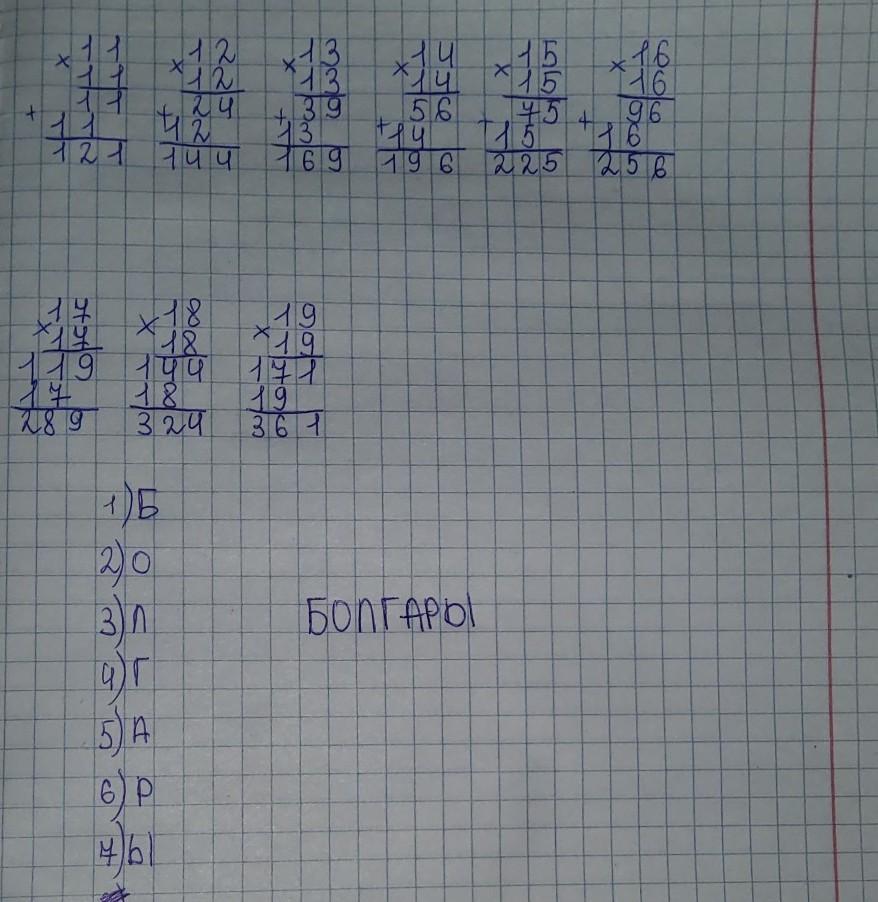 × 11 × 12 × 13 × 14 × 15 × 16
11 12 13 14 15 16
11 24 39 56 75 96
+ 11 + 12 + 13 + 14 + 15 + 16
121 144 169 196 225 256
× 17 × 18 × 19
17 18 19
119 144 171
17 18 19
289 324 361
1) Б
2) О
3) Л
БОЛГАРЫ
4) Г
5) А
6) Р
7) Ы